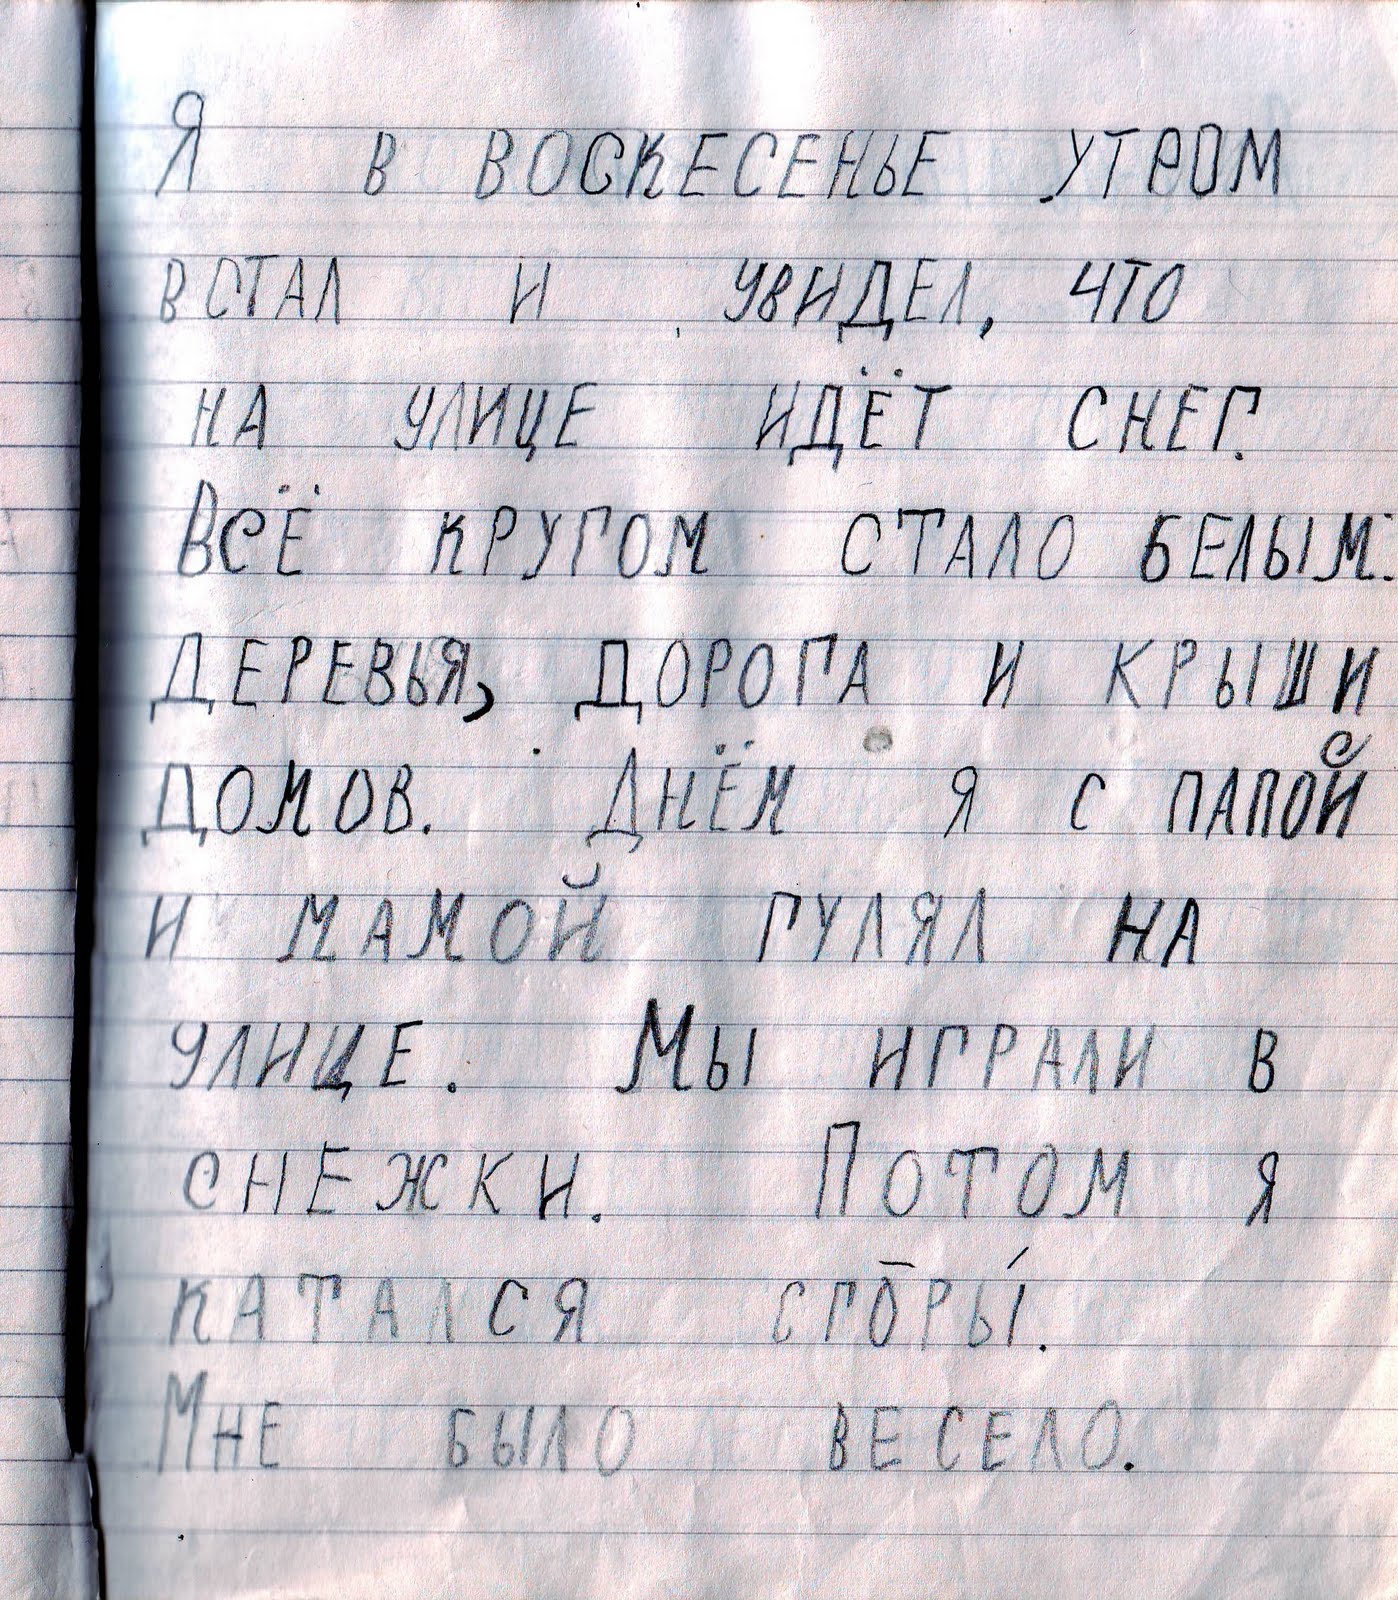 Я в воскесенье утром
встал и увидел, что
на улице идёт снег.
Всё кругом стало белым.
Деревья, дорога и крыши
домов. Днём я с папой
и мамой гулял на
улице. Мы играли в
снежки. Потом я
катался сгоры́.
Мне было весело.